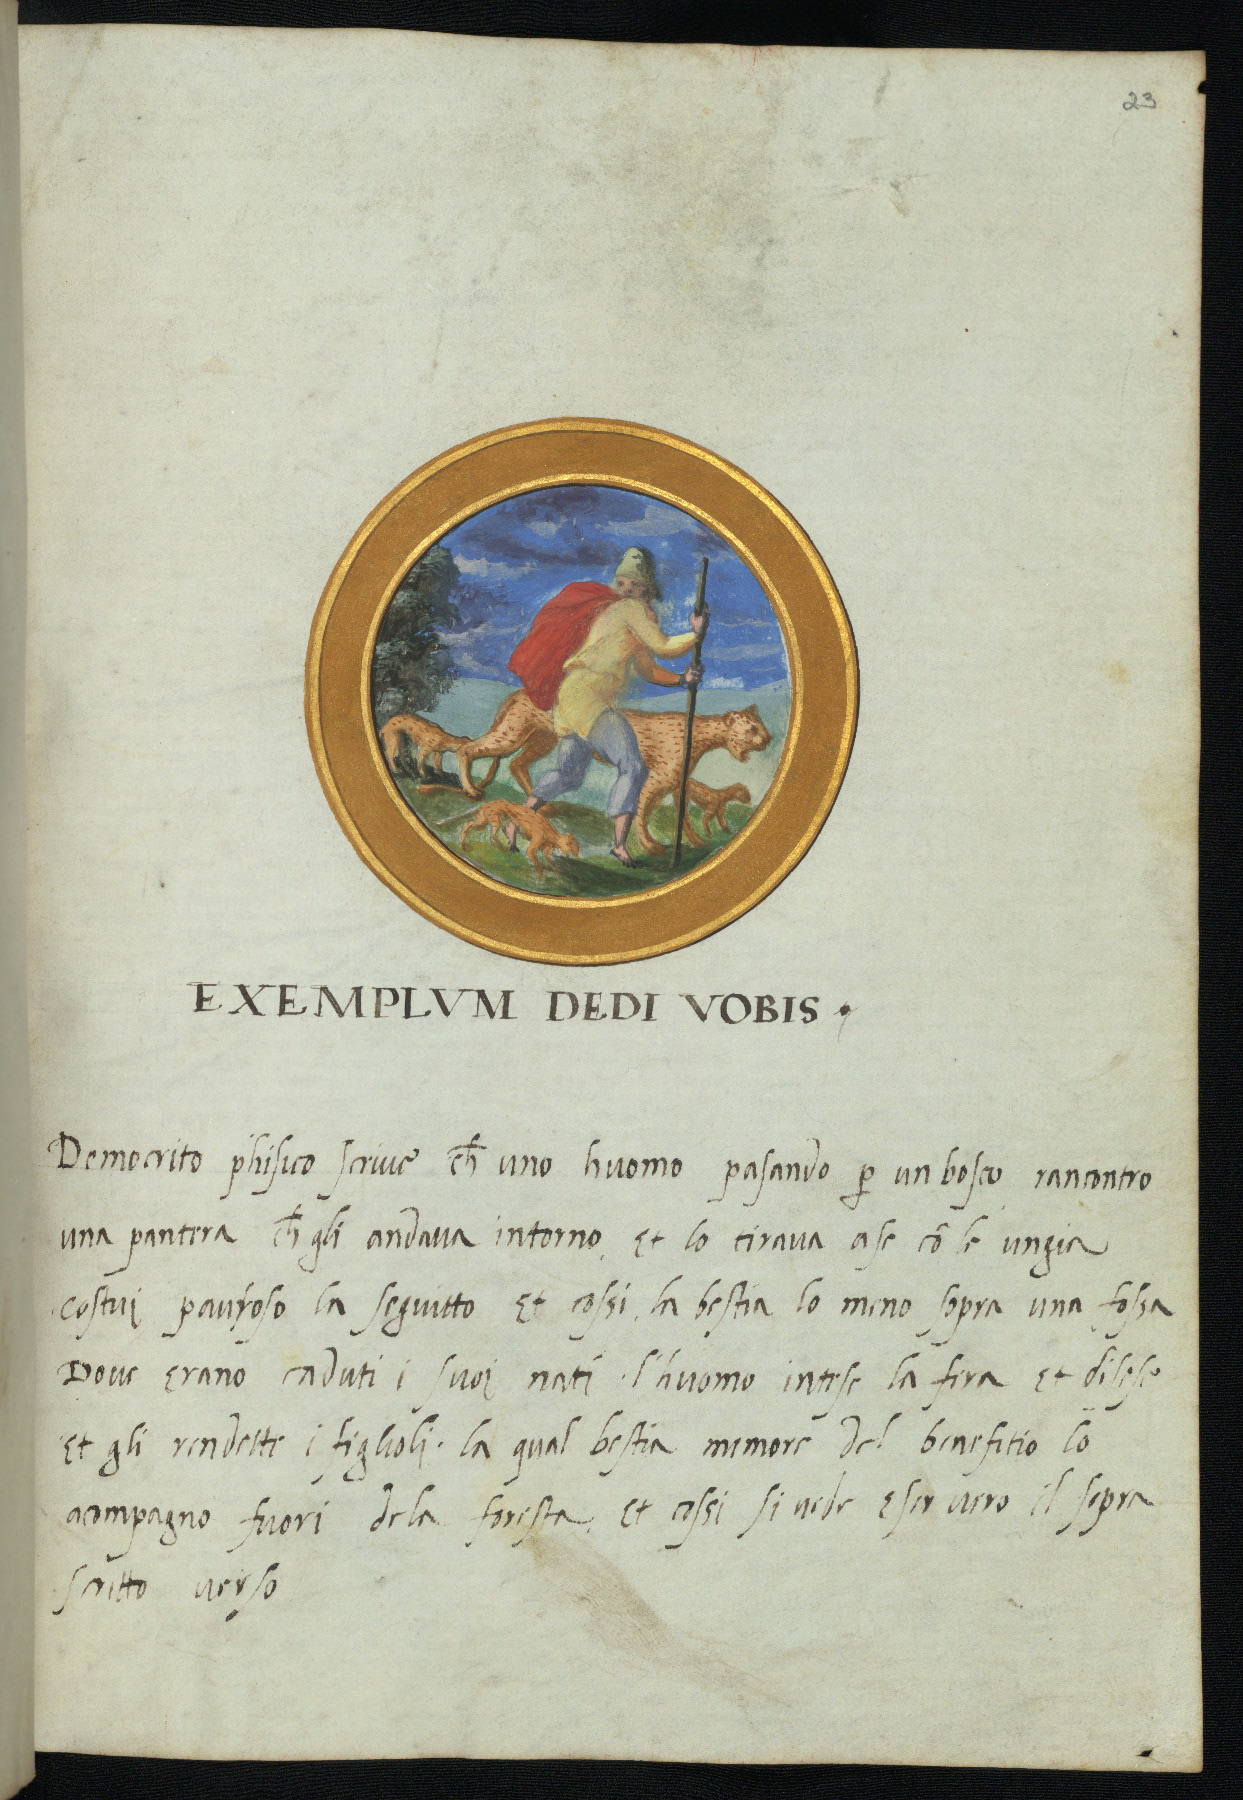 23
EXEMPLVM DEDI VOBIS
Democrito phisico scriue ch̄ uno huomo pasando ꝑ un bosco rancontro
una pantera ch̄ gli andaua intorno et lo tiraua ase cō le ungie
costui pauroso la seguitto et cossi la bestia lo meno sopra una fossa
Doue erano caduti i suoi nati l'huomo intese la fera et discese
et gli rendette i figlioli · la qual bestia memore del benefitio lo
acompagno fuori dela foresta, et cossi si uede eser uero il sopra
scritto uerso